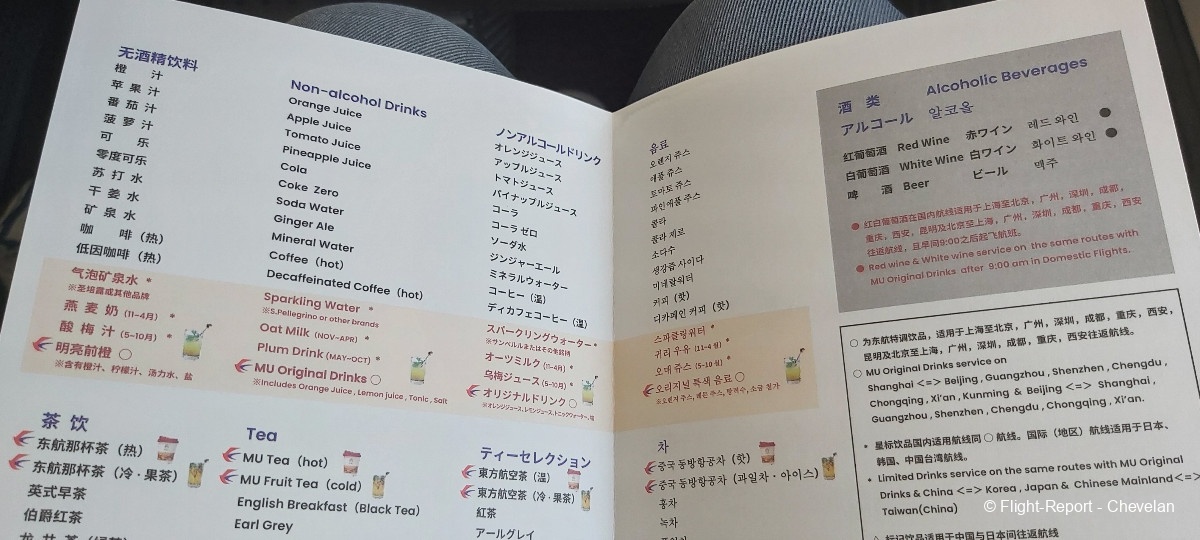 无酒精饮料
橙 汁
苹 果 汁
番 茄 汁
菠 萝 汁
可 乐
零度可乐
苏 打 水
干 姜 水
矿 泉 水
咖 啡（热）
低因咖啡（热）
气泡矿泉水 *
※圣培露或其他品牌
燕 麦 奶 (11-4月) *
酸 梅 汁 (5-10月) *
明亮前橙 ○
※含有橙汁、柠檬汁、汤力水、盐
茶 饮
东航那杯茶（热）
东航那杯茶（冷·果茶）
英式早茶
伯爵红茶
Non-alcohol Drinks
Orange Juice
Apple Juice
Tomato Juice
Pineapple Juice
Cola
Coke Zero
Soda Water
Ginger Ale
Mineral Water
Coffee（hot）
Decaffeinated Coffee（hot）
Sparkling Water *
※S.Pellegrino or other brands
Oat Milk (NOV-APR) *
Plum Drink (MAY-OCT) *
MU Original Drinks ○
※Includes Orange Juice , Lemon juice , Tonic , Salt
Tea
MU Tea（hot）
MU Fruit Tea（cold）
English Breakfast（Black Tea）
Earl Grey
ノンアルコールドリンク
オレンジジュース
アップルジュース
トマトジュース
パイナップルジュース
コーラ
コーラ ゼロ
ソーダ水
ジンジャーエール
ミネラルウォーター
コーヒー（温）
ディカフェコーヒー（温）
スパークリングウォーター *
※サンペルルまたはその他銘柄
オーツミルク (11-4月) *
乌梅ジュース (5-10月) *
オリジナルドリンク ○
ティーセレクション
東方航空茶（温）
東方航空茶（冷·果茶）
紅茶
アールグレイ
음료
오렌지 쥬스
애플 쥬스
토마토 쥬스
파인애플 주스
콜라
콜라 제로
소다수
생강즙 사이다
미네랄워터
커피（핫）
디카페인 커피（핫）
스파클링 워터 *
귀리 우유 (11-4월) *
오매 쥬스 (5-10월) *
오리지널 특색 음료 ○
※오렌지 주스, 레몬 주스, 탄산수, 소금 첨가
차
중국 동방항공차（핫）
중국 동방항공차（과일차·아이스）
홍차
녹차
酒 类 Alcoholic Beverages
アルコール 알코올
红葡萄酒 Red Wine 赤ワイン 레드 와인 ●
白葡萄酒 White Wine 白ワイン 화이트 와인 ●
啤 酒 Beer ビール 맥주
● 红白葡萄酒在国内航线适用于上海至北京，广州，深圳，成都，
重庆，西安，昆明及北京至上海，广州，深圳，成都，重庆，西安
往返航线，且早间9:00之后起飞航班。
● Red wine & White wine service on the same routes with
MU Original Drinks after 9:00 am in Domestic Flights.
○ 为东航特调饮品，适用于上海至北京，广州，深圳，成都，重庆，西安，
昆明及北京至上海，广州，深圳，成都，重庆，西安往返航线。
○ MU Original Drinks service on
Shanghai <=> Beijing , Guangzhou , Shenzhen , Chengdu ,
Chongqing , Xi'an , Kunming & Beijing <=> Shanghai ,
Guangzhou , Shenzhen , Chengdu , Chongqing , Xi'an.
* 星标饮品国内适用航线同 ○ 航线。国际（地区）航线适用于日本、
韩国、中国台湾航线。
* Limited Drinks service on the same routes with MU Original
Drinks & China <=> Korea , Japan & Chinese Mainland<=>
Taiwan(China)
△ 标记饮品适用于中国与日本间往返航线
© Flight-Report - Chevelan